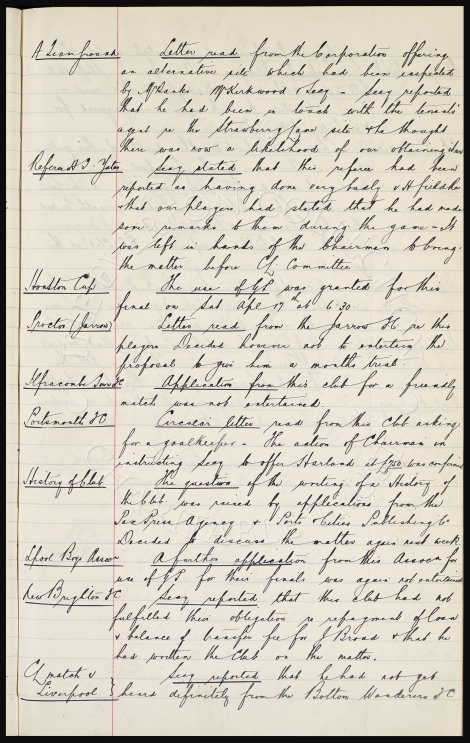 A Team ground Letter read from the Corporation offering
an alternative site which had been inspected
by Mr Banks, Mr Kirkwood & Secy - Secy reported
that he had been in touch with the tenants
agent re the Strawberry Lane site & he thought
there was now a likelihood of our obtaining same
Referee H. J. Yates Secy stated that this referee had been
reported as having done very badly v Huddersfield
& that our players had stated that he had made
some remarks to them during the game - It
was left in hands of the Chairman to bring
the matter before CL Committee
Houston Cup The use of GP was granted for this
final on Sat Apl 17th at 6.30
Proctor (Jarrow) Letter read from the Jarrow FC re this
player Decided however not to entertain the
proposal to give him a months trial.
Ilfracombe Town FC Application from this club for a friendly
match was not entertained.
Portsmouth FC Circular letter read from this Club asking
for a goalkeeper - The action of Chairman in
instructing Secy to offer Harland at £750 was confirmed
History of Club The question of the writing of a History of
the Club was raised by applications from the
Press Agency & Ports & Cities Publishing Co
Decided to discuss the matter again next week
Lpool Boys Assocn A further application from this Assocn for
use of GP for their finals was again not entertained
New Brighton FC Secy reported that this club had not
fulfilled their obligation re repayment of loan
& balance of transfer fee for J Broad & that he
had written the Club on the matter.
CL match v Secy reported that he had not yet
Liverpool } heard definitely from the Bolton Wanderers FC